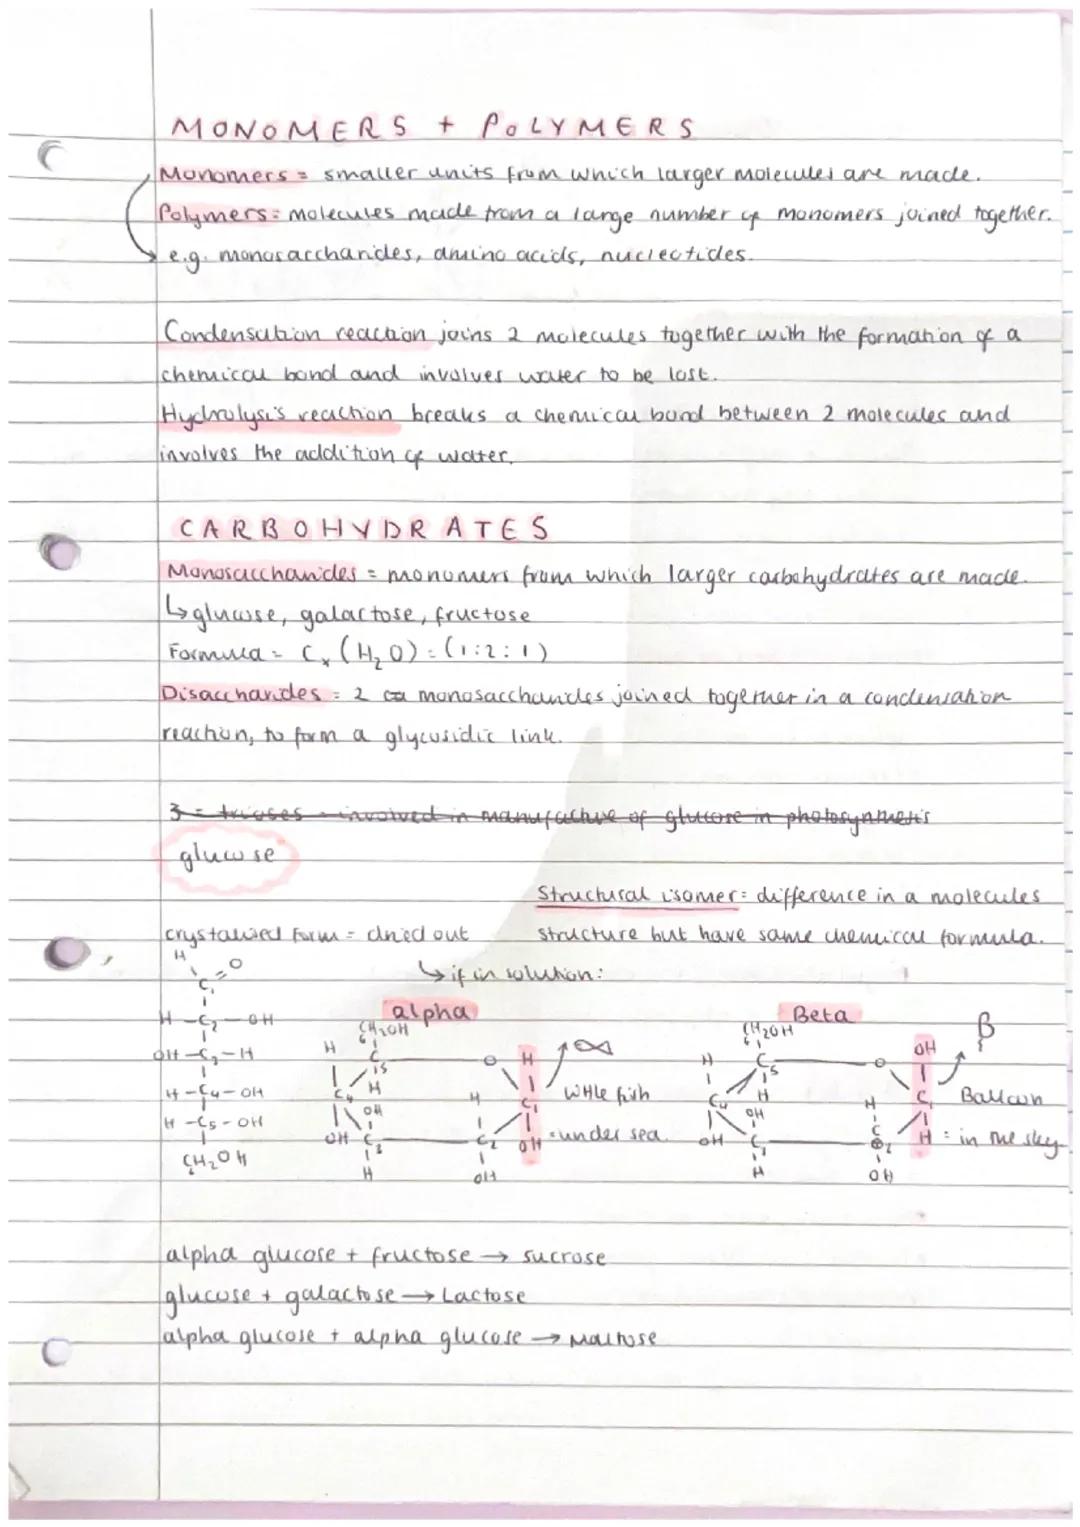 MONOMERS + POLYMERS
Monomers = smaller units from which larger molecules are made.
Polymers = molecules made from a large number of monomers joined together.
e.g. monosaccharides, amino acids, nucleotides.
Condensation reaction joins 2 molecules together with the formation of a
chemical bond and involves water to be lost.
Hydrolysis reaction breaks a chemical bond between 2 molecules and
involves the addition of water.
CARBOHYDRATES
Monosaccharides = monomers from which larger carbohydrates are made.
↳ glucose, galactose, fructose
Formula = Cx (H2O) = (1:2:1)
Disaccharides = 2 monosaccharides joined together in a condensation
reaction, to form a glycosidic link.
3 = trioses - involved in manufacture of glucose in photosynthesis
glucose
Structural isomer = difference in a molecules
crystalised form = dried out
structure but have same chemical formula.
↳ if in solution:
alpha
Beta
H O
C1
H - C2 - OH
OH - C3 - H
H - C4 - OH
H - C5 - OH
C6H2OH
6CH2OH
H C5 O H
C4 H H C1
OH OH C3 C2 OH
H OH
∝
White fish
= under sea
6CH2OH
H C5 O OH
C4 H H C1
OH OH C3 C2 H
H OH
β
Balloon
= in the sky
alpha glucose + fructose → sucrose
glucose + galactose → Lactose
alpha glucose + alpha glucose → Maltose